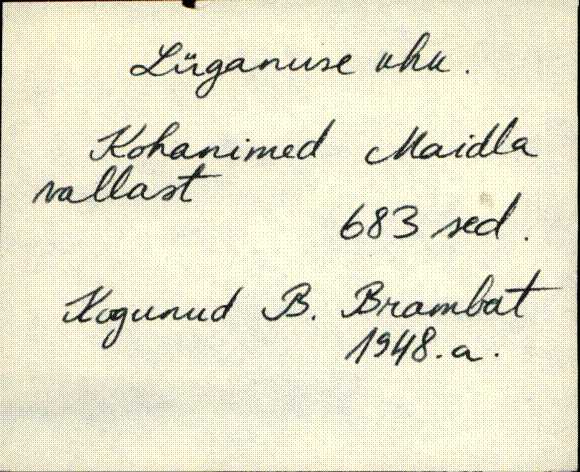 Lüganuse khk.
Kohanimed Maidla
vallast
683 sed.
Kogunud B. Brambat
1948.a.